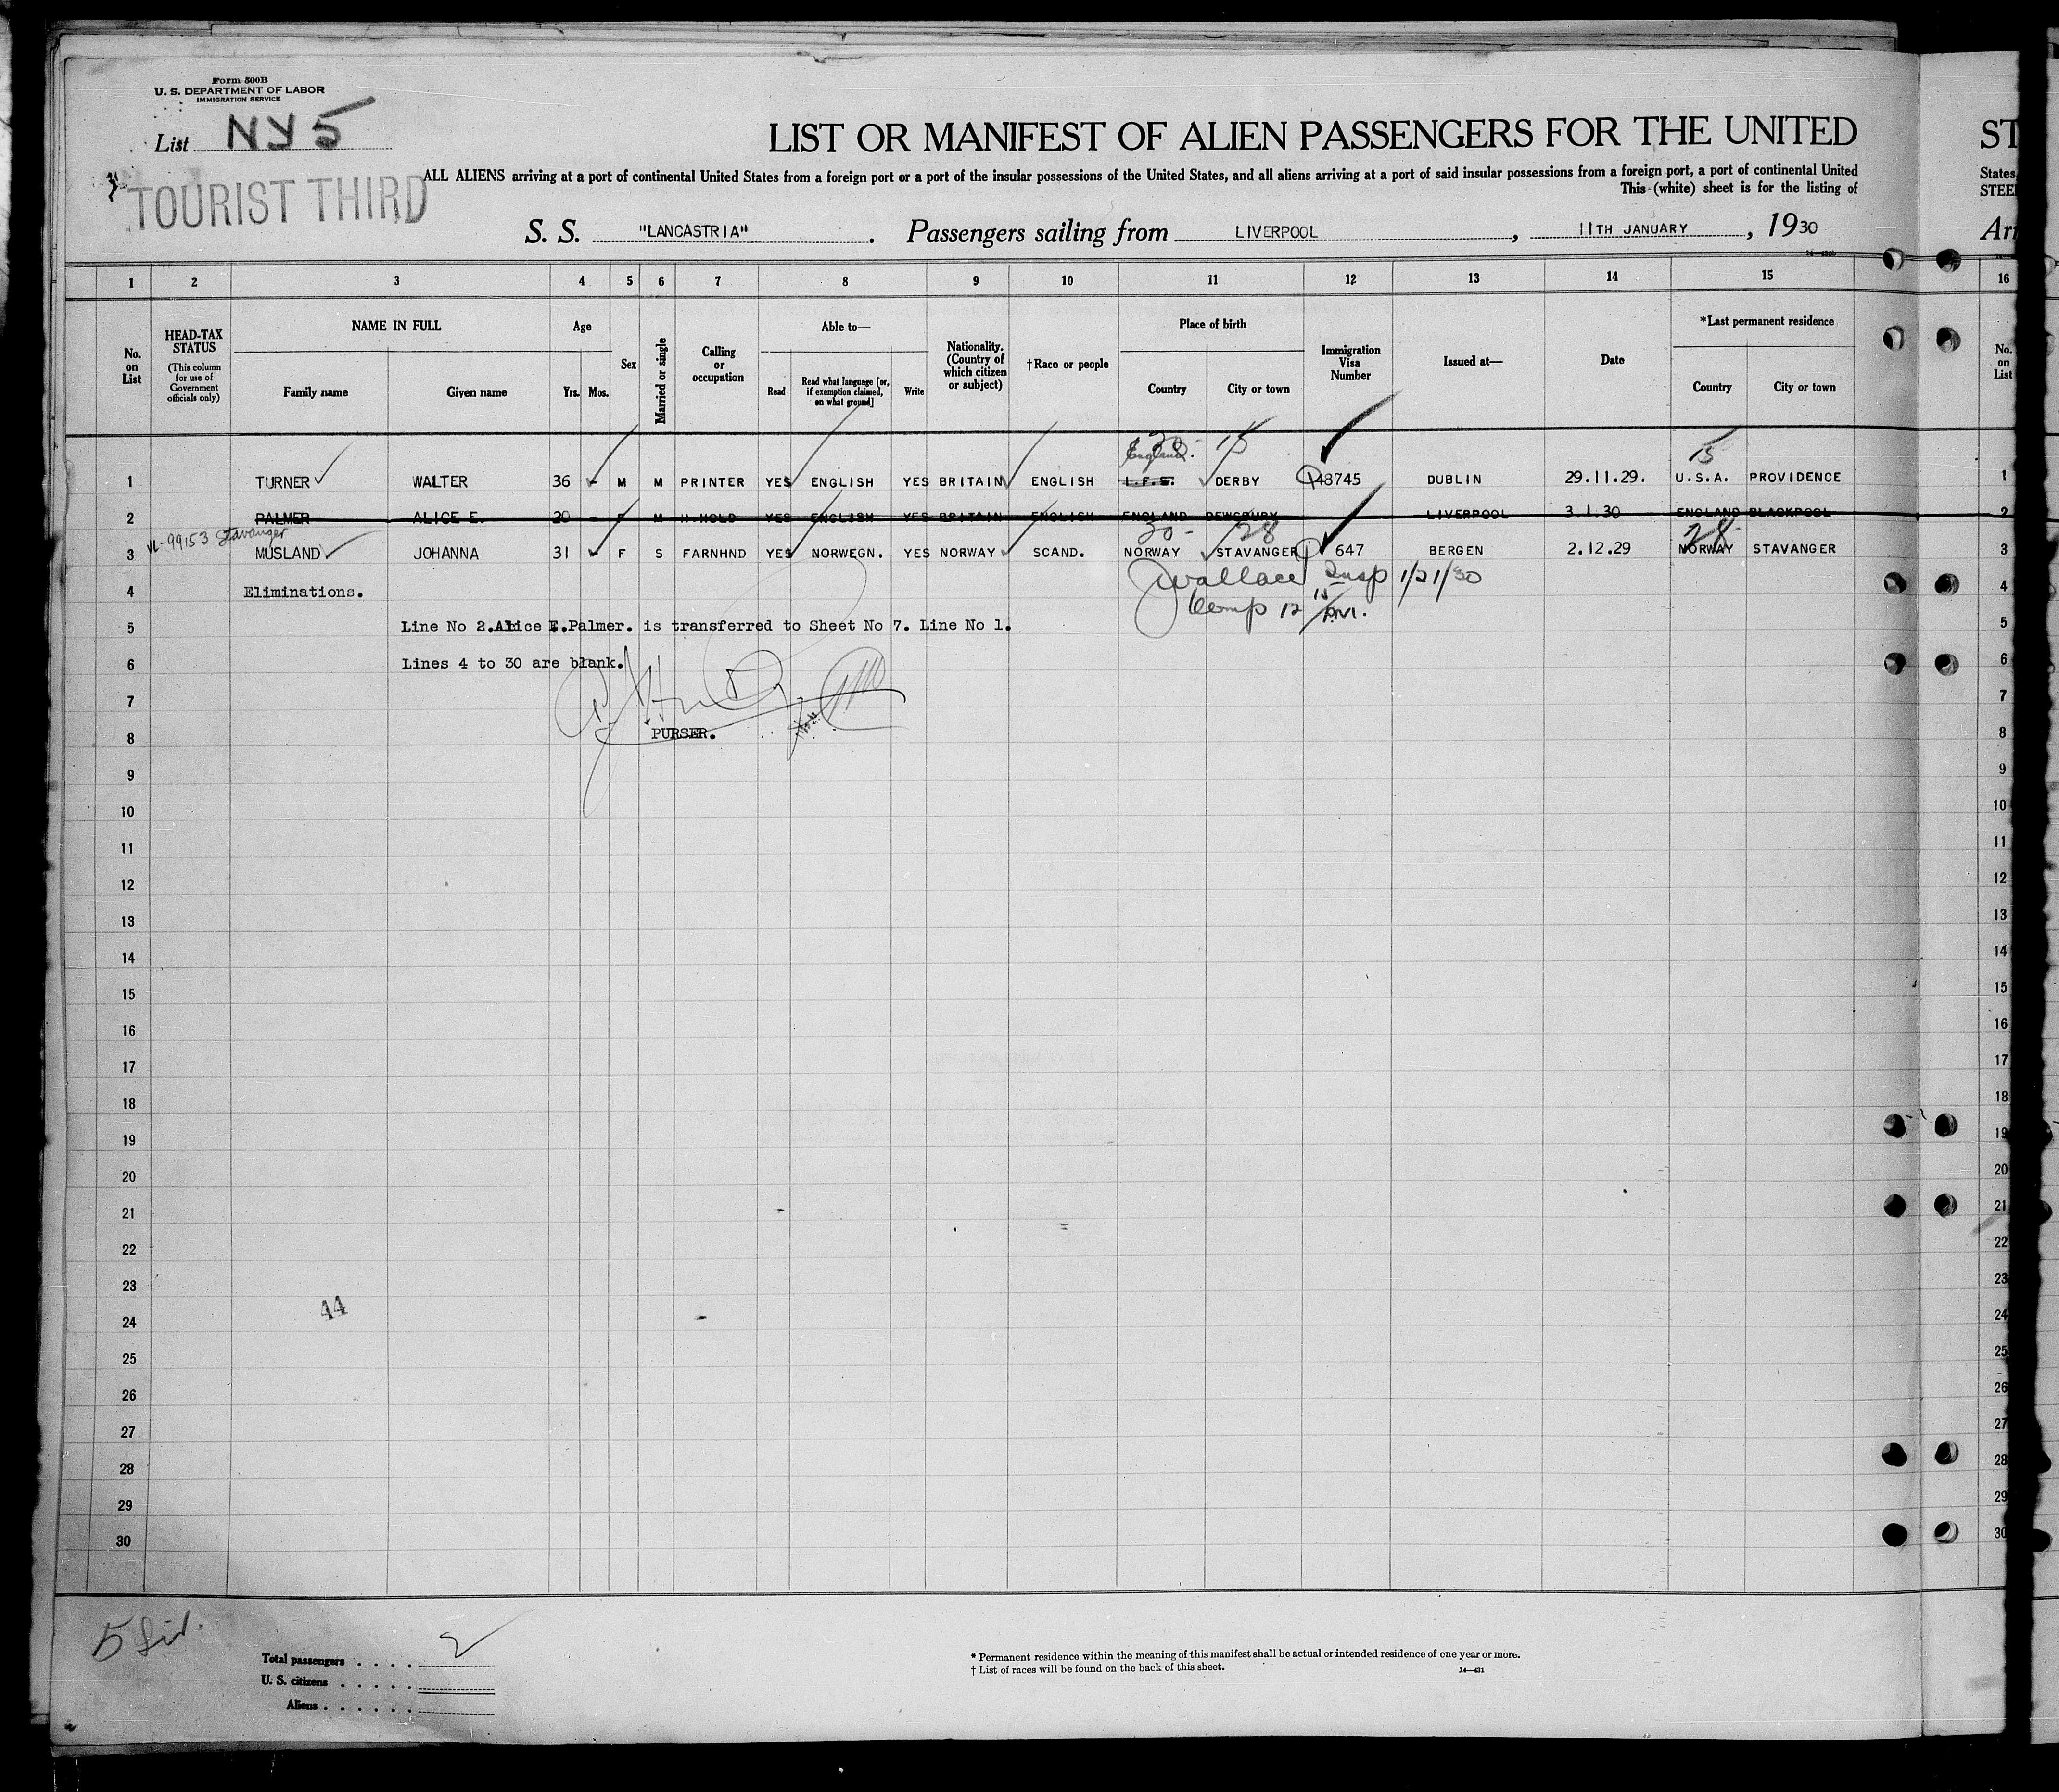 Form 500B
U. S. DEPARTMENT OF LABOR
IMMIGRATION SERVICE
List NY 5
TOURIST THIRD
LIST OR MANIFEST OF ALIEN PASSENGERS FOR THE UNITED
ST
ALL ALIENS arriving at a port of continental United States from a foreign port or a port of the insular possessions of the United States, and all aliens arriving at a port of said insular possessions from a foreign port, a port of continental United
States
This (white) sheet is for the listing of
STEE
S. S. "LANCASTRIA". Passengers sailing from LIVERPOOL, 11TH JANUARY, 1930
Arr
1 2 3 4 5 6 7 8 9 10 11 12 13 14 15 16
No. on List
HEAD-TAX STATUS
(This column for use of Government officials only)
NAME IN FULL
Family name
Given name
Age
Yrs. Mos.
Sex
Married or single
Calling or occupation
Able to—
Read
Read what language [or, if exemption claimed, on what ground]
Write
Nationality. (Country of which citizen or subject)
†Race or people
Place of birth
Country
City or town
Immigration Visa Number
Issued at—
Date
*Last permanent residence
Country
City or town
No. on List
England. 15 15
1 TURNER WALTER 36 - M M PRINTER YES ENGLISH YES BRITAIN ENGLISH I.F.S. DERBY 48745 DUBLIN 29.11.29. U.S.A. PROVIDENCE 1
2 PALMER ALICE E. 20 - F M H.HOLD YES ENGLISH YES BRITAIN ENGLISH ENGLAND DEWSBURY LIVERPOOL 3.1.30 ENGLAND BLACKPOOL 2
VL-99153 Stavanger 30 - 28 28
3 MUSLAND JOHANNA 31 F S FARNHND YES NORWEGN. YES NORWAY SCAND. NORWAY STAVANGER 647 BERGEN 2.12.29 NORWAY STAVANGER 3
Wallace Insp 1/21/30
4 Eliminations. 4
Comp 12 15 P.M.
5 Line No 2. Alice E. Palmer. is transferred to Sheet No 7. Line No 1. 5
6 Lines 4 to 30 are blank. 6
7 7
8 PURSER. 8
9 9
10 10
11 11
12 12
13 13
14 14
15 15
16 16
17 17
18 18
19 19
20 20
21 21
22 22
23 23
44
24 24
25 25
26 26
27 27
28 28
29 29
30 30
Total passengers . . . . 2
U. S. citizens . . . . .
Aliens . . . . . .
* Permanent residence within the meaning of this manifest shall be actual or intended residence of one year or more.
† List of races will be found on the back of this sheet.
14—431